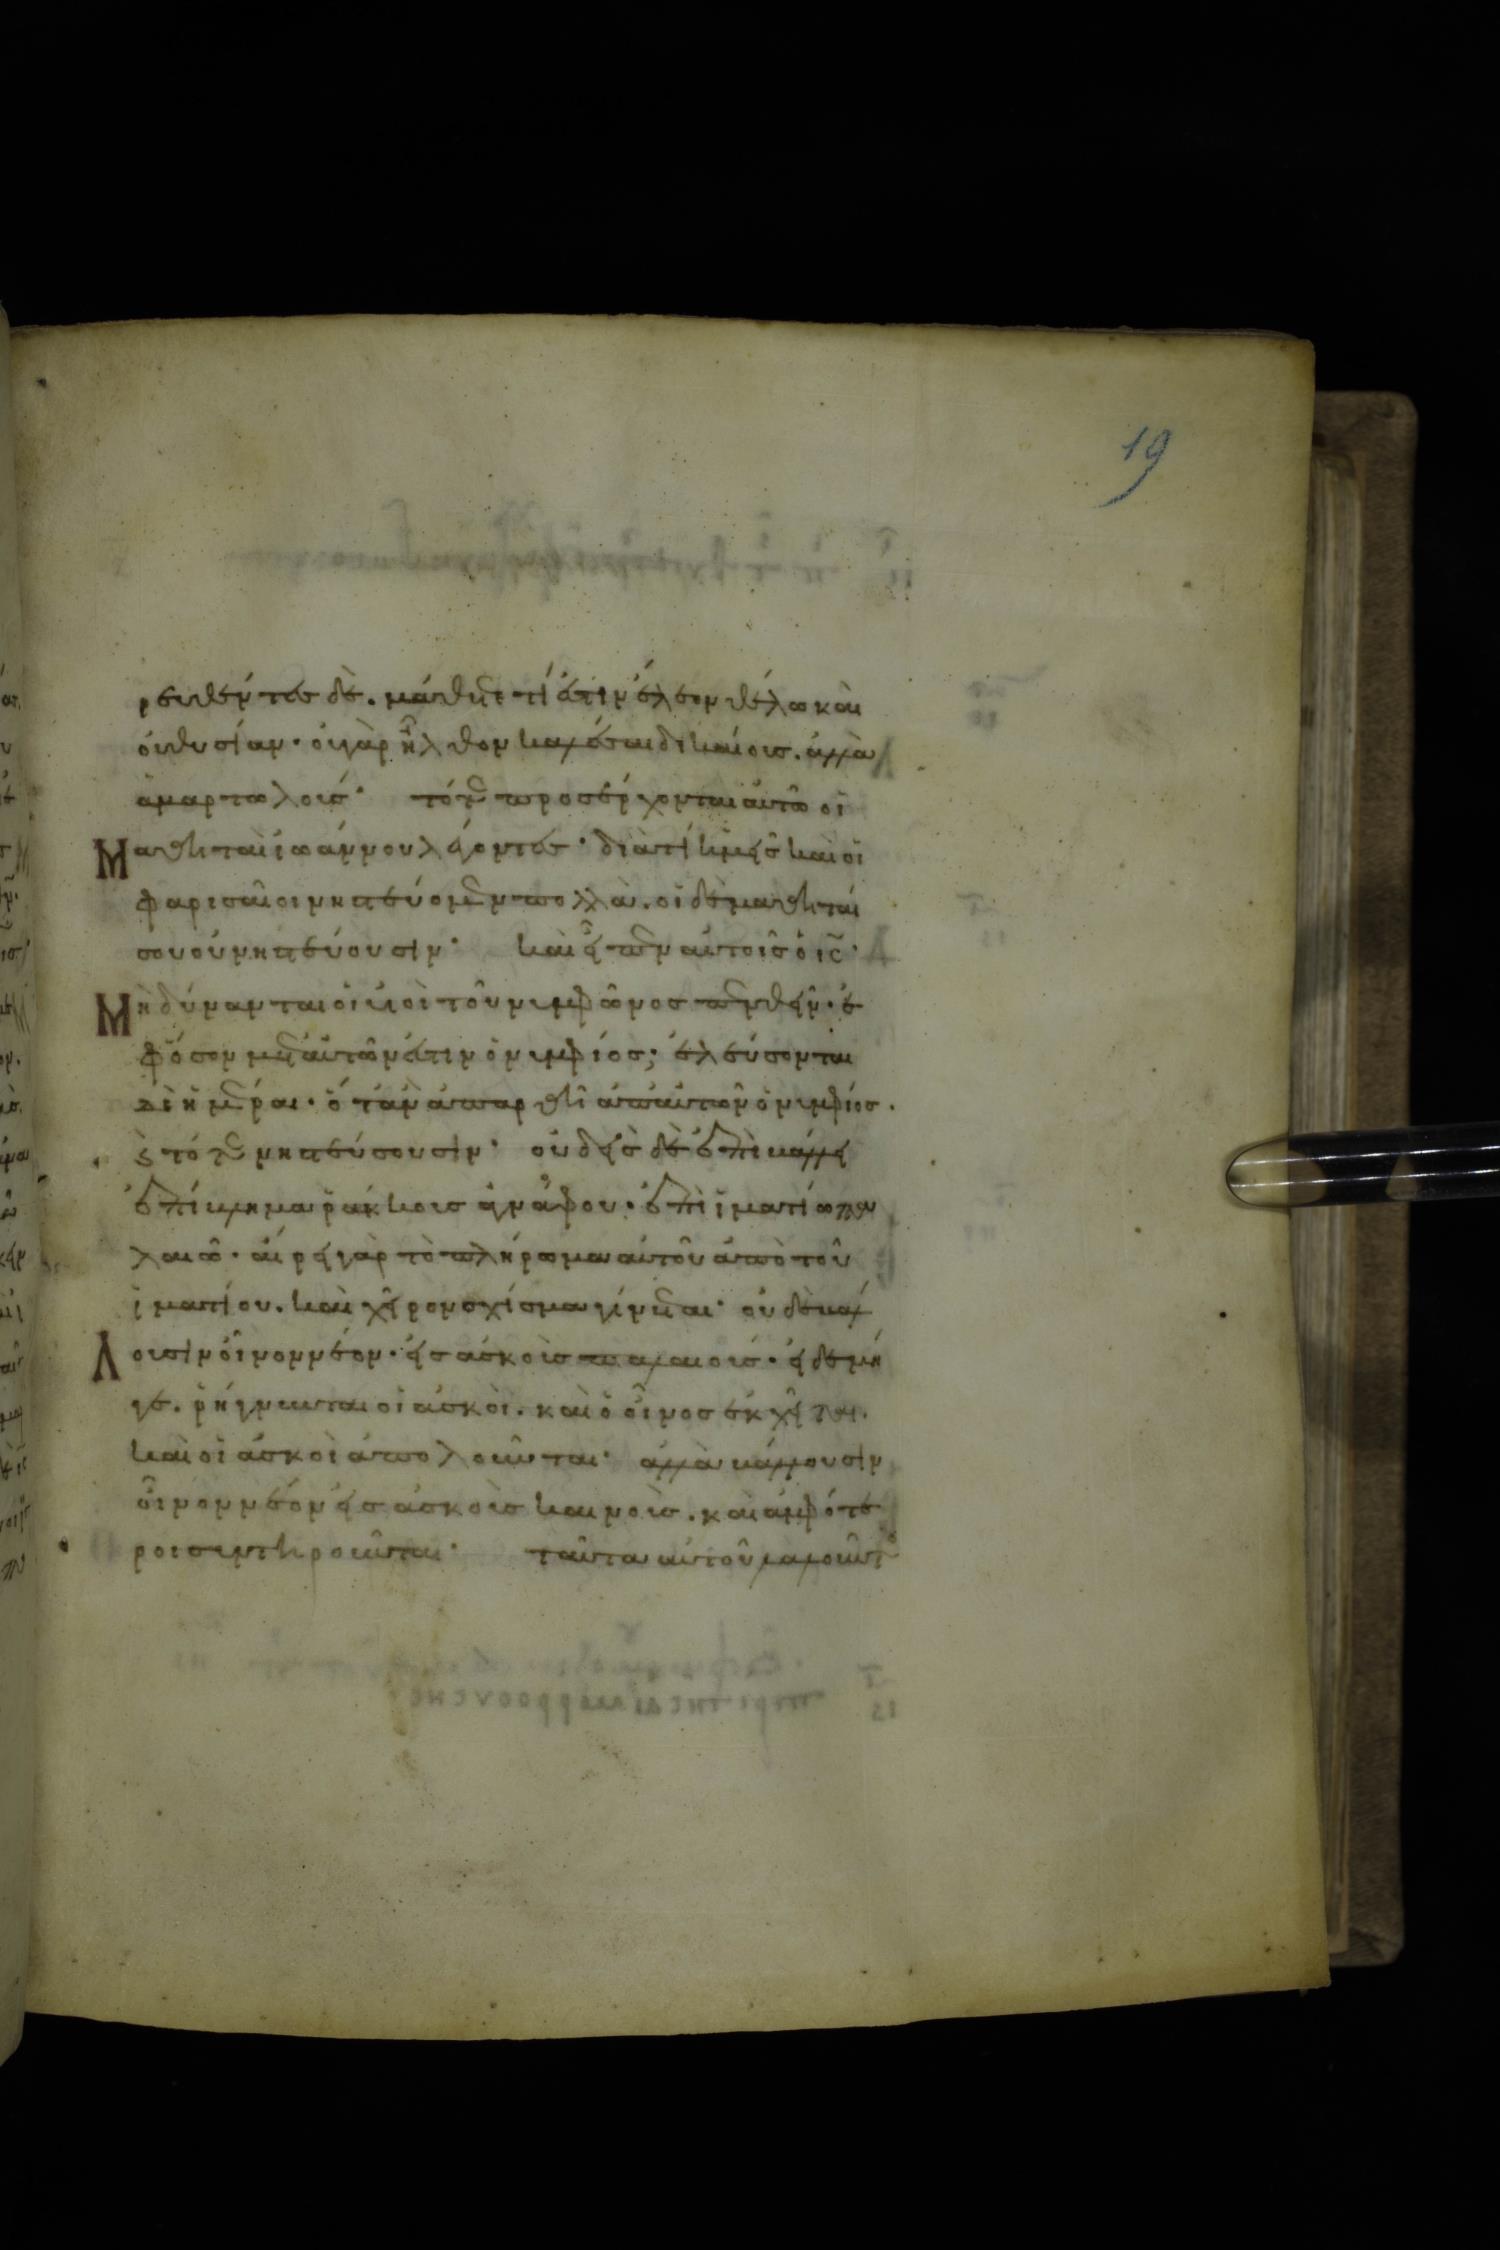 19
ρευθέντες δὲ. μάθετε τί ἐστιν ἔλεον θέλω καὶ
οὐ θυσίαν· οὐ γὰρ ἦλθον καλέσαι δικαίους. ἀλλὰ
ἁμαρτωλούς· τότε προσέρχονται αὐτῶ οἱ
Μαθηταὶ ἰωάννου λέγοντες· διατί ἡμεῖς καὶ οἱ
φαρισαῖοι νηστεύομεν πολλὰ. οἱ δὲ μαθηταί
σου οὐ νηστεύουσιν· καὶ εἶπεν αὐτοῖς ὁ ις·
Μὴ δύνανται οἱ υἱοὶ τοῦ νυμφῶνος πενθεῖν· ἐ
φ ὅσον μετ αὐτῶν ἐστιν ὁ νυμφίος; ἐλεύσονται
δὲ ἡμέραι· ὅταν ἀπαρθῆ ἀπ αὐτῶν ὁ νυμφίος.
ϗ τότε νηστεύσουσιν· οὐδεὶς δὲ ἐπιβάλλει
ἐπίβλημα ῥάκκους ἀγνάφου· ἐπὶ ἱματίω πα
λαιῶ· αἴρει γὰρ τὸ πλήρωμα αὐτοῦ ἀπὸ τοῦ
ἱματίου. καὶ χεῖρον σχίσμα γίνεται· οὐδὲ βάλ
Λουσιν οἶνον νέον· εἰς ἀσκοὺς παλαιούς· εἰ δὲ μή
γε. ῥήγνυνται οἱ ἀσκοὶ. καὶ ὁ οἶνος ἐκχεῖται.
καὶ οἱ ἀσκοὶ ἀπολοῦνται· ἀλλὰ βάλλουσιν
οἶνον νέον εἰς ἀσκοὺς καινοὺς. καὶ ἀμφότε
ροι συντηροῦνται· ταῦτα αὐτοῦ λαλοῦντο